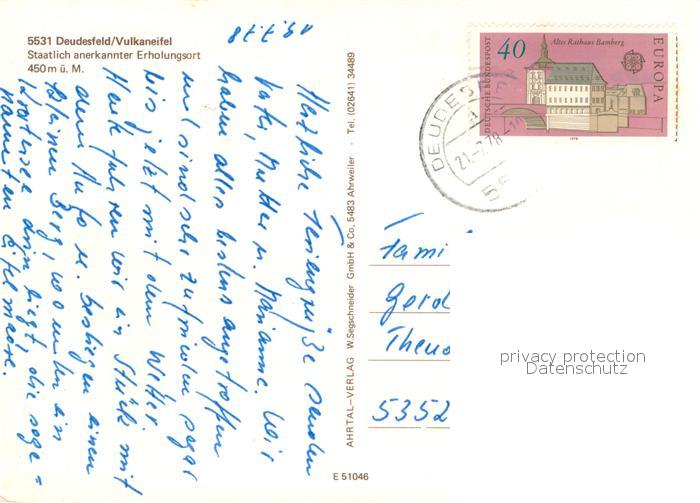 5531 Deudesfeld/Vulkaneifel
Staatlich anerkannter Erholungsort
450 m ü. M.
19.7.78
Herzliche Feriengrüße senden
Vater, Mutter u. Marianne. Wir
haben alles bestens angetroffen
und sind sehr zufrieden sogar
bis jetzt mit dem Wetter.
Heute fuhren wir ein Stück mit
dem Auto u. bestiegen einen
kleinen Berg, wo unten ein
Kratersee drin liegt, die soge=
nannten Eifelmaare.
AHRTAL-VERLAG W. Segschneider GmbH & Co. 5483 Ahrweiler · Tel. (02641) 34489
E 51046
DEUTSCHE BUNDESPOST
40
Altes Rathaus Bamberg
EUROPA
1978
DEUDES
21.-7.78
55
Fami
Gerd
Theno
5352
privacy protection
Datenschutz